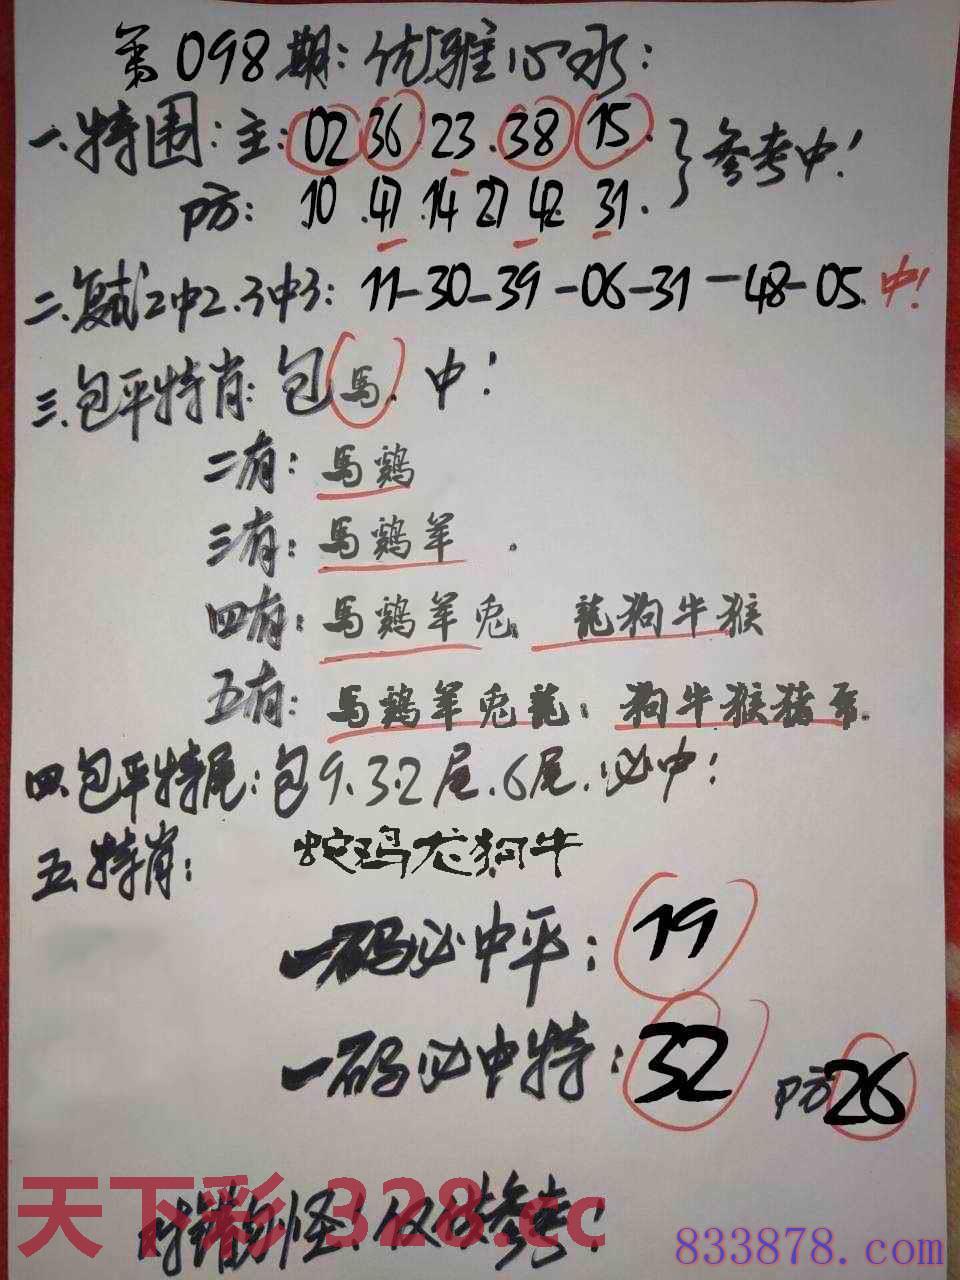 第098期：优雅心水：
一.特围：主：02 36 23.38 15.
防：10.47.14 27 42 31.
}参考中！
二.复式2中2.3中3：11-30-39-06-31-48-05.中！
三.包平特肖：包馬.中！
二有：馬鷄
三有：馬鷄羊.
四有：馬鷄羊兎. 龍狗牛猴
五有：馬鷄羊兎龍；狗牛猴猪.
四.包平特尾：包9.3.2尾.6尾.必中！
五.特肖：蛇鸡龙狗牛
一码必中平：19
一码必中特：32 防26
对错勿怪！仅供参考！
天下彩 328.cc
833878.com